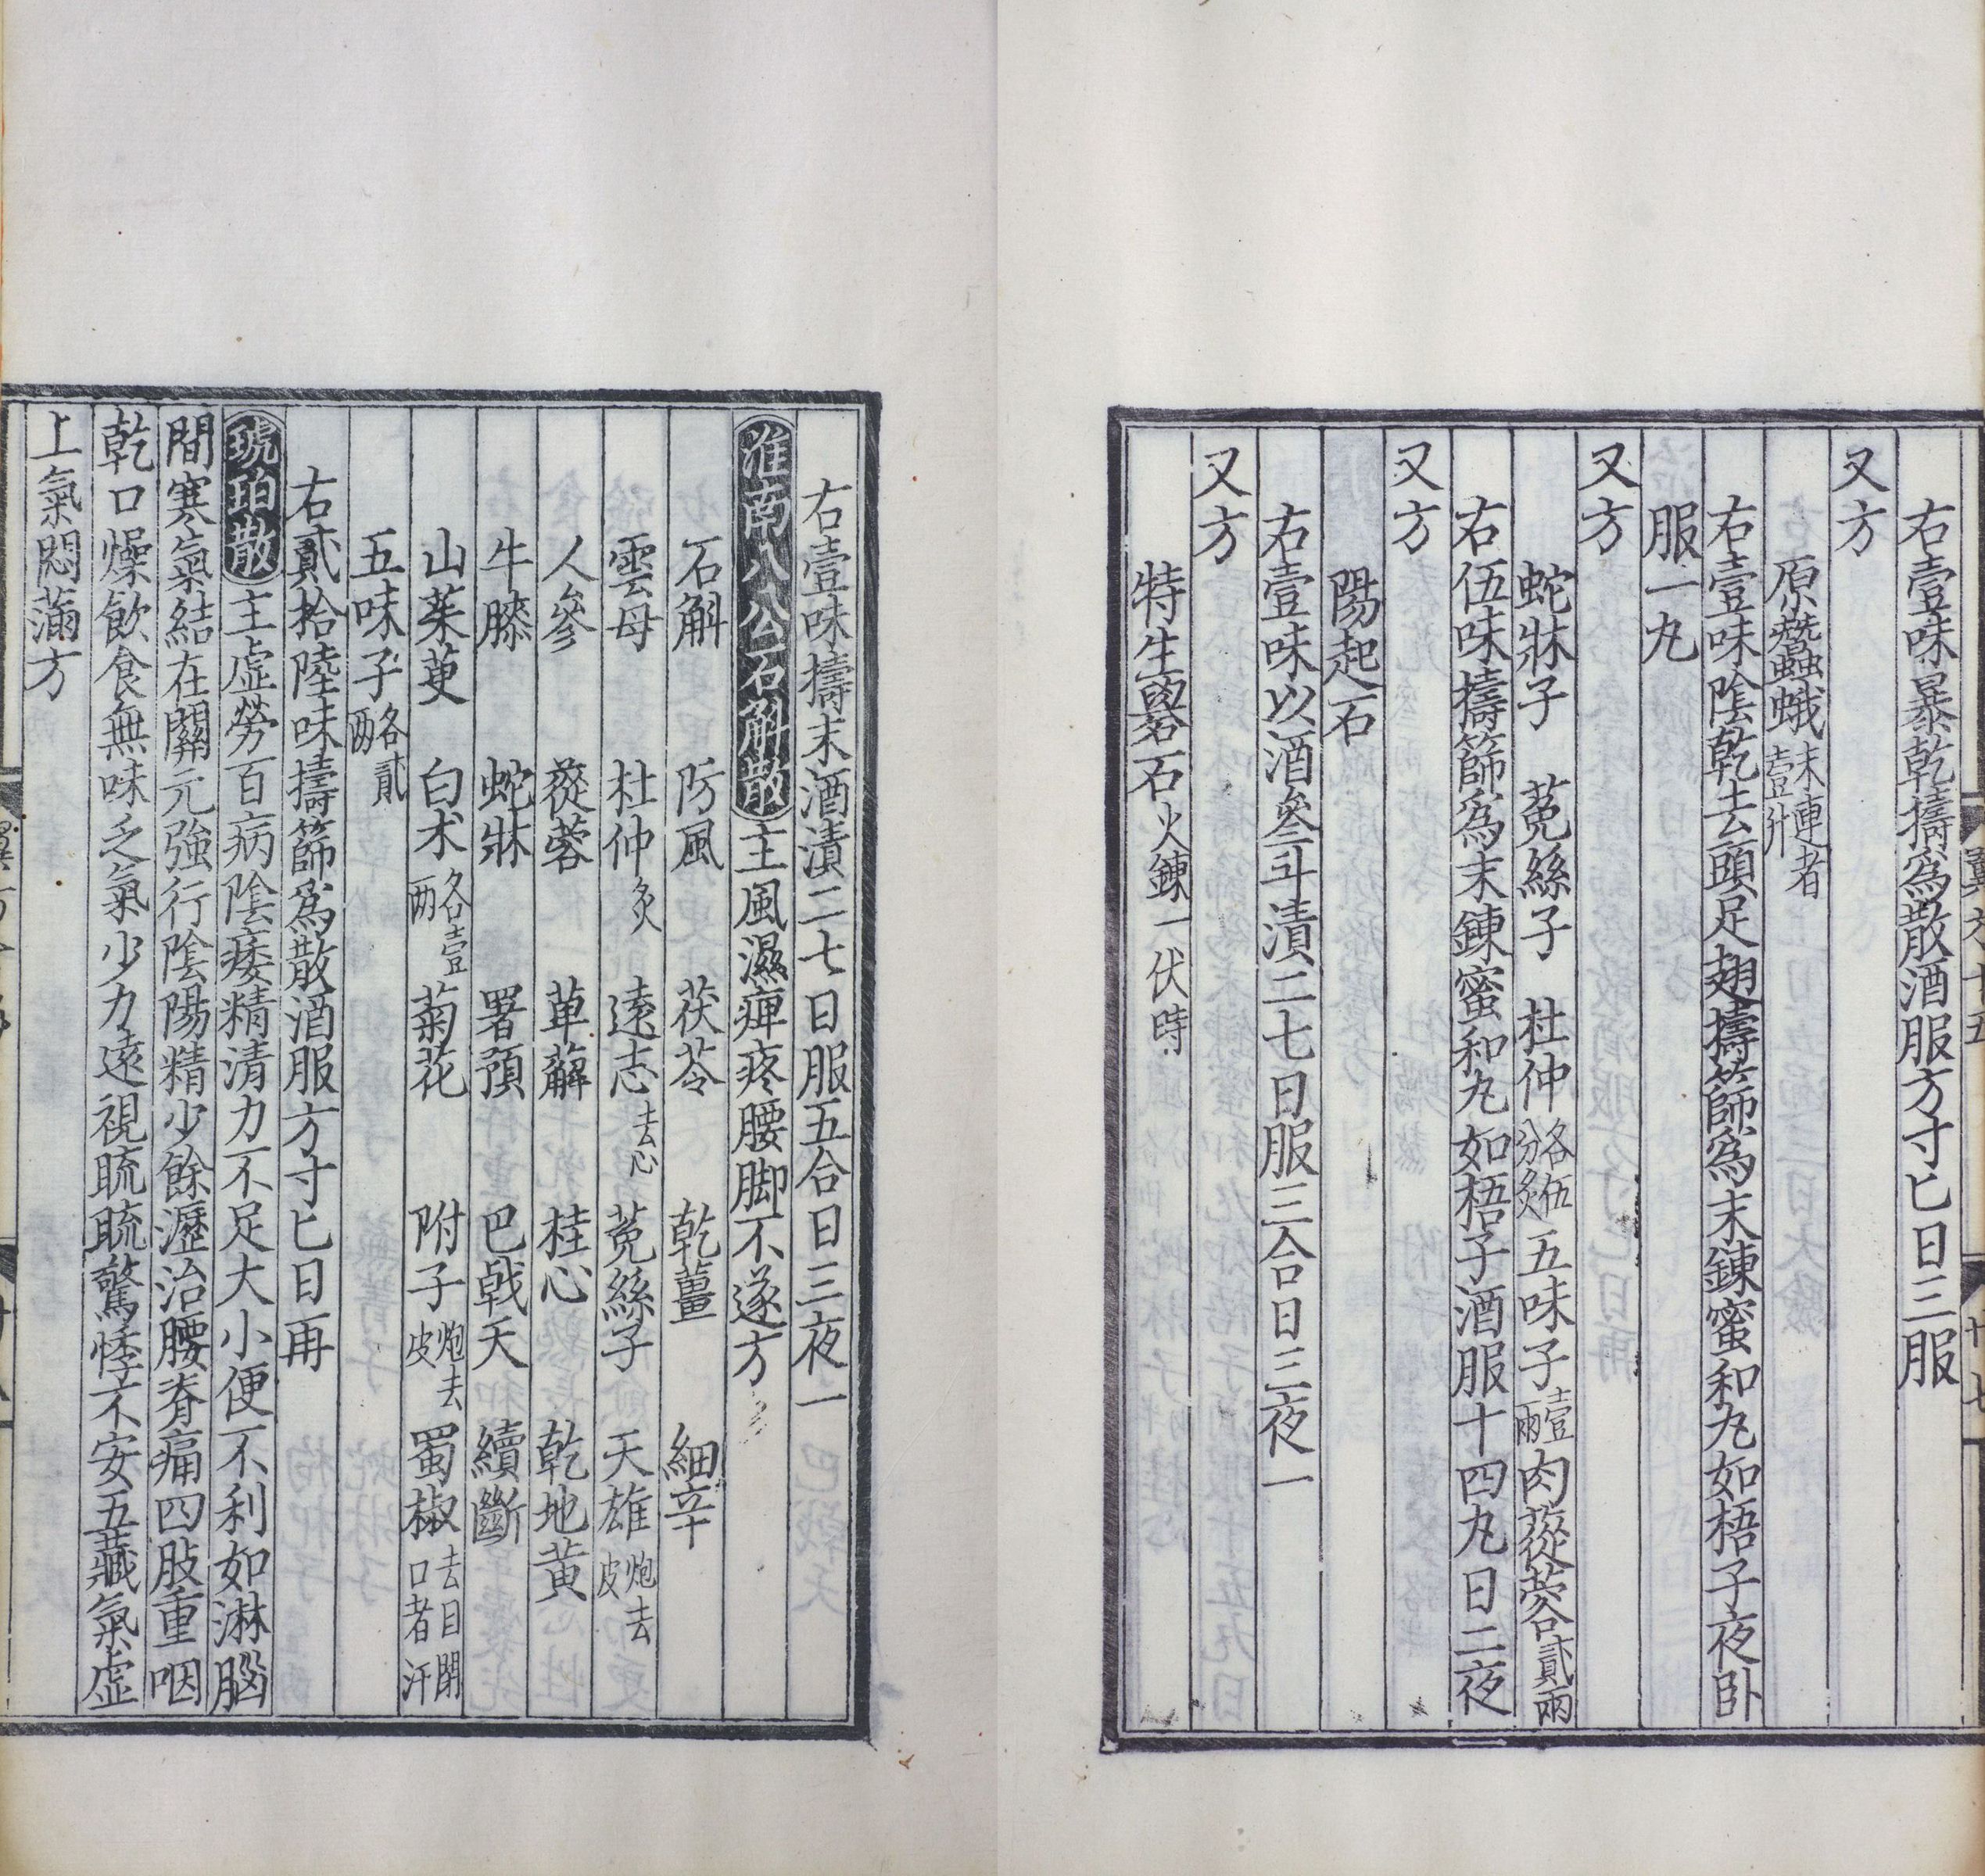 右壹味暴乾擣為散酒服方寸匕日三服
又方
原蠶蛾末連者壹升
右壹味陰乾去頭足翅擣篩為末鍊蜜和丸如梧子夜卧
服一丸
又方
蛇牀子 菟絲子 杜仲各伍分炙 五味子壹兩 肉蓯蓉貳兩
右伍味擣篩為末鍊蜜和丸如梧子酒服十四丸日二夜
一
又方
陽起石
右壹味以酒叁斗漬二七日服三合日三夜一
又方
特生礜石火鍊一伏時
右壹味擣末酒漬二七日服五合日三夜一
淮南八公石斛散主風濕痺疼腰脚不遂方
石斛 防風 茯苓 乾薑 細辛
雲母 杜仲炙 遠志去心 菟絲子 天雄炮去皮
人參 蓯蓉 萆薢 桂心 乾地黄
牛膝 蛇牀 署預 巴戟天 續斷
山茱萸 白朮各壹兩 菊花 附子炮去皮 蜀椒去目閉口者汗
五味子各貳兩
右貳拾陸味擣篩為散酒服方寸匕日再
琥珀散主虛勞百病陰痿精清力不足大小便不利如淋腦
間寒氣結在關元強行陰陽精少餘瀝治腰脊痛四肢重咽
乾口燥飲食無味乏氣少力遠視䀮䀮驚悸不安五藏氣虛
上氣悶滿方